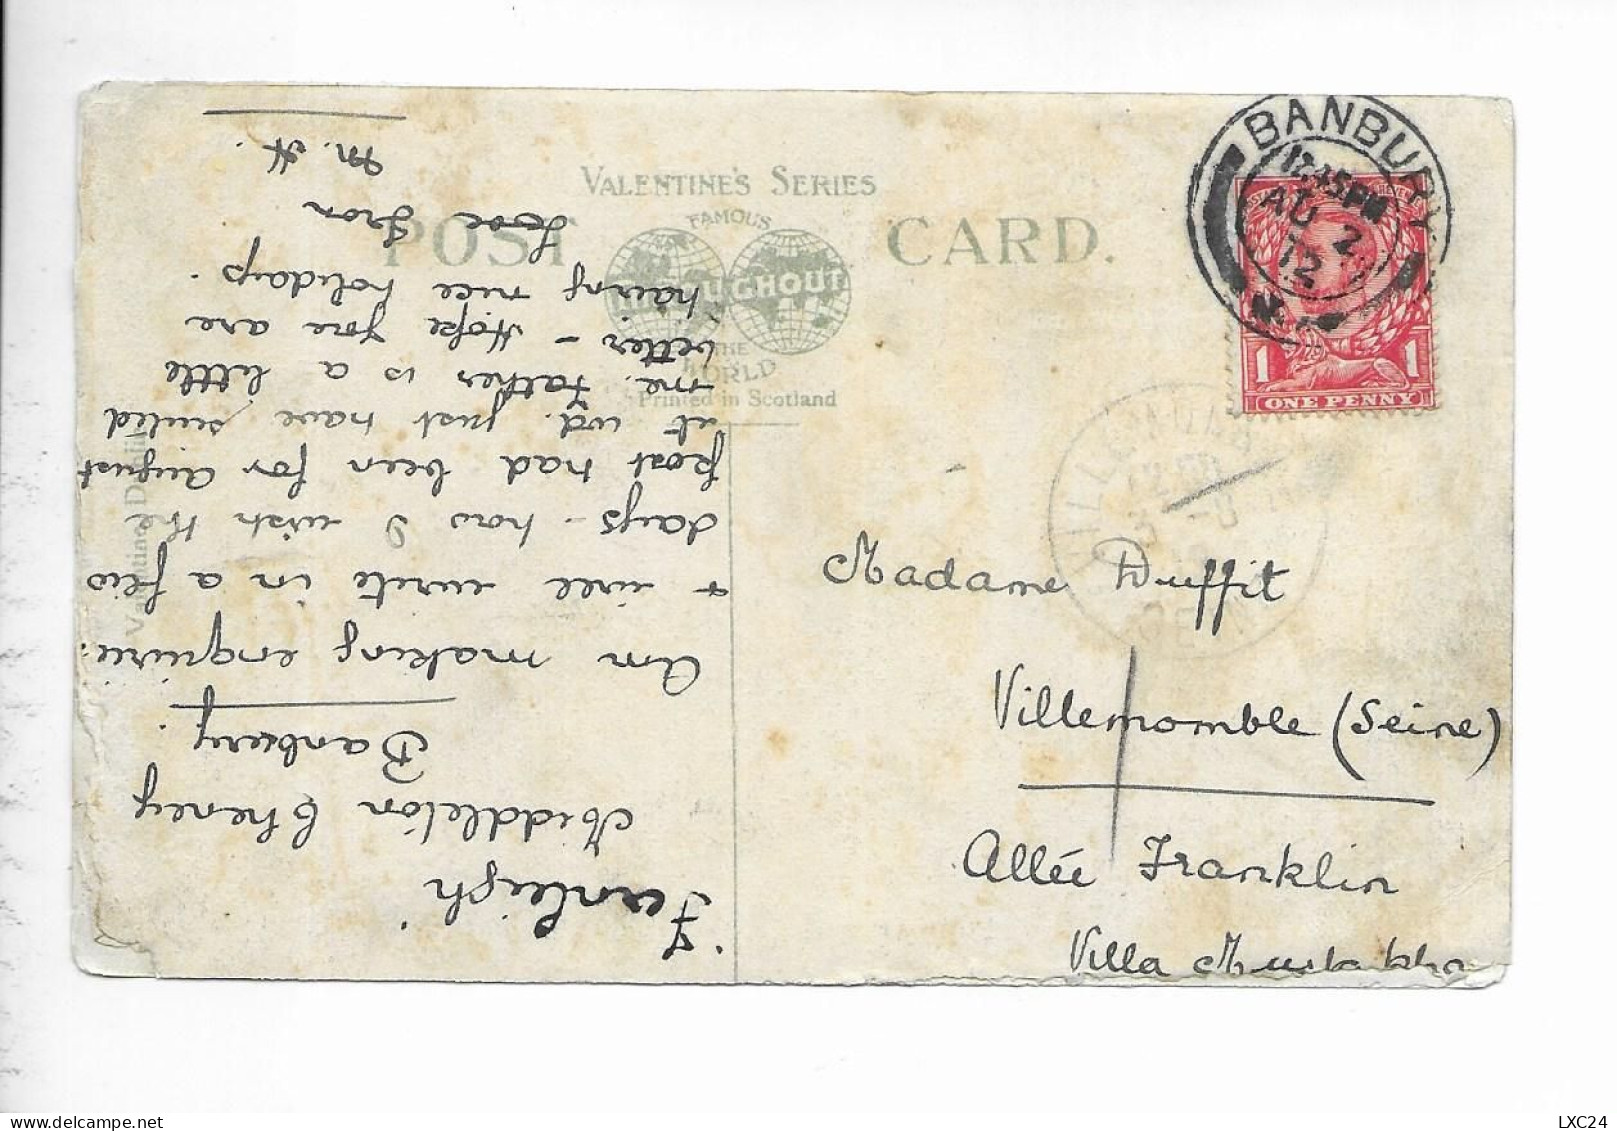 VALENTINE'S SERIES
POST CARD.
FAMOUS
THROUGHOUT
THE
WORLD
Printed in Scotland
BANBURY
12.45PM
AU 2
12
1 1
ONE PENNY
Madame Duffit
Villemomble (Seine)
Allée Franklin
Villa
Fanleigh
Middleton Cheney
Banbury.
Am making enquire:
+ will write in a few
days - how I wish the
post had been for August
it wd. just have suited
me. Father is a little
better - Hope you are
having nice holidays.
Love from
M. H.
LXC24